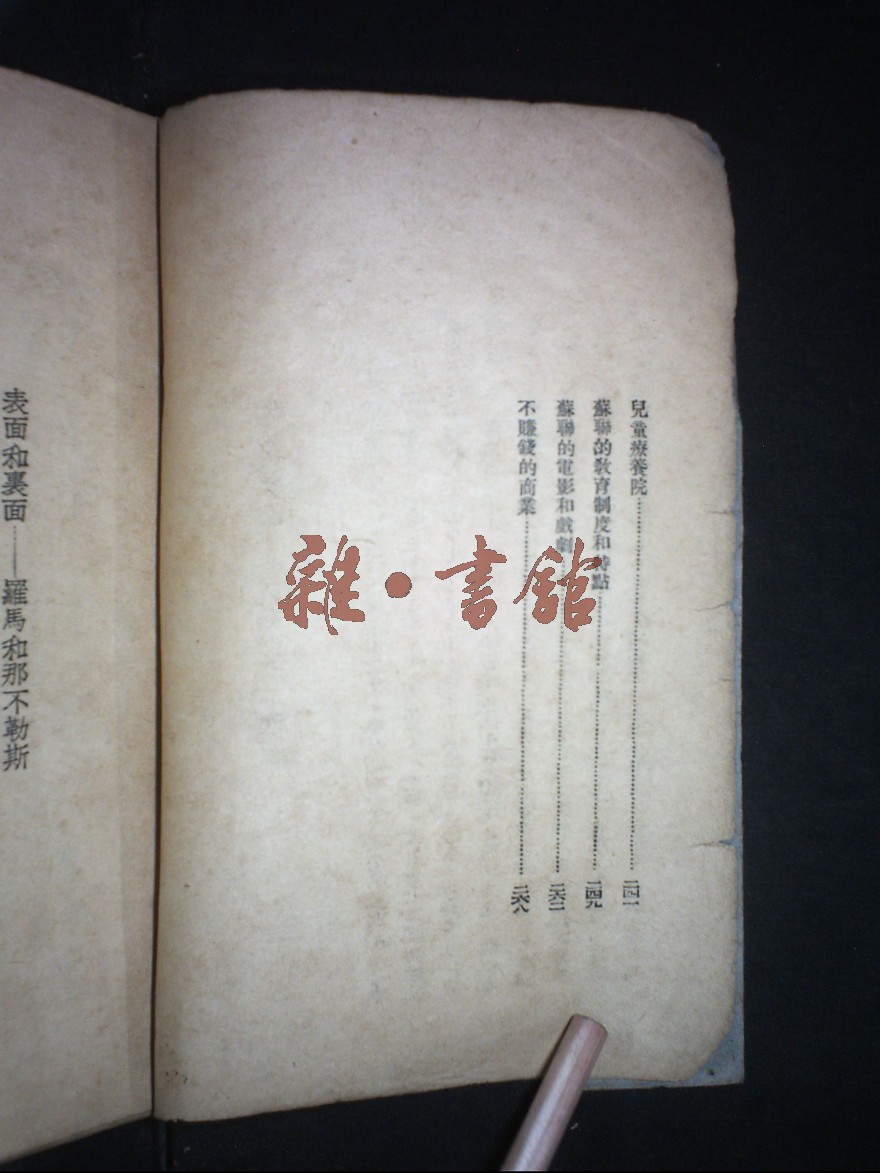 兒童療養院……二四一
蘇聯的教育制度和特點……二四九
蘇聯的電影和戲劇……二六二
不賺錢的商業……二六八
表面和裏面——羅馬和那不勒斯
雜·書館